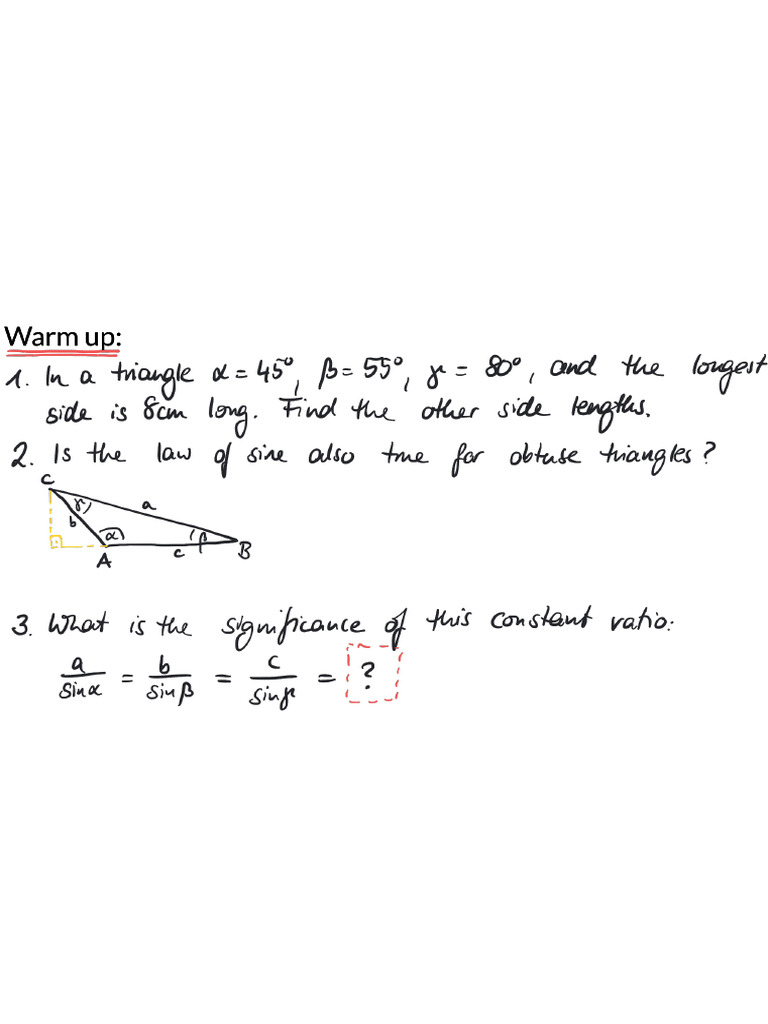 Warm up:
1. In a triangle α = 45°, β = 55°, γ = 80°, and the longest
side is 8cm long. Find the other side lengths.
2. Is the law of sine also true for obtuse triangles?
C
γ
a
b
α
β
A
c
B
3. What is the significance of this constant ratio:
a/sinα = b/sinβ = c/sinγ = ?